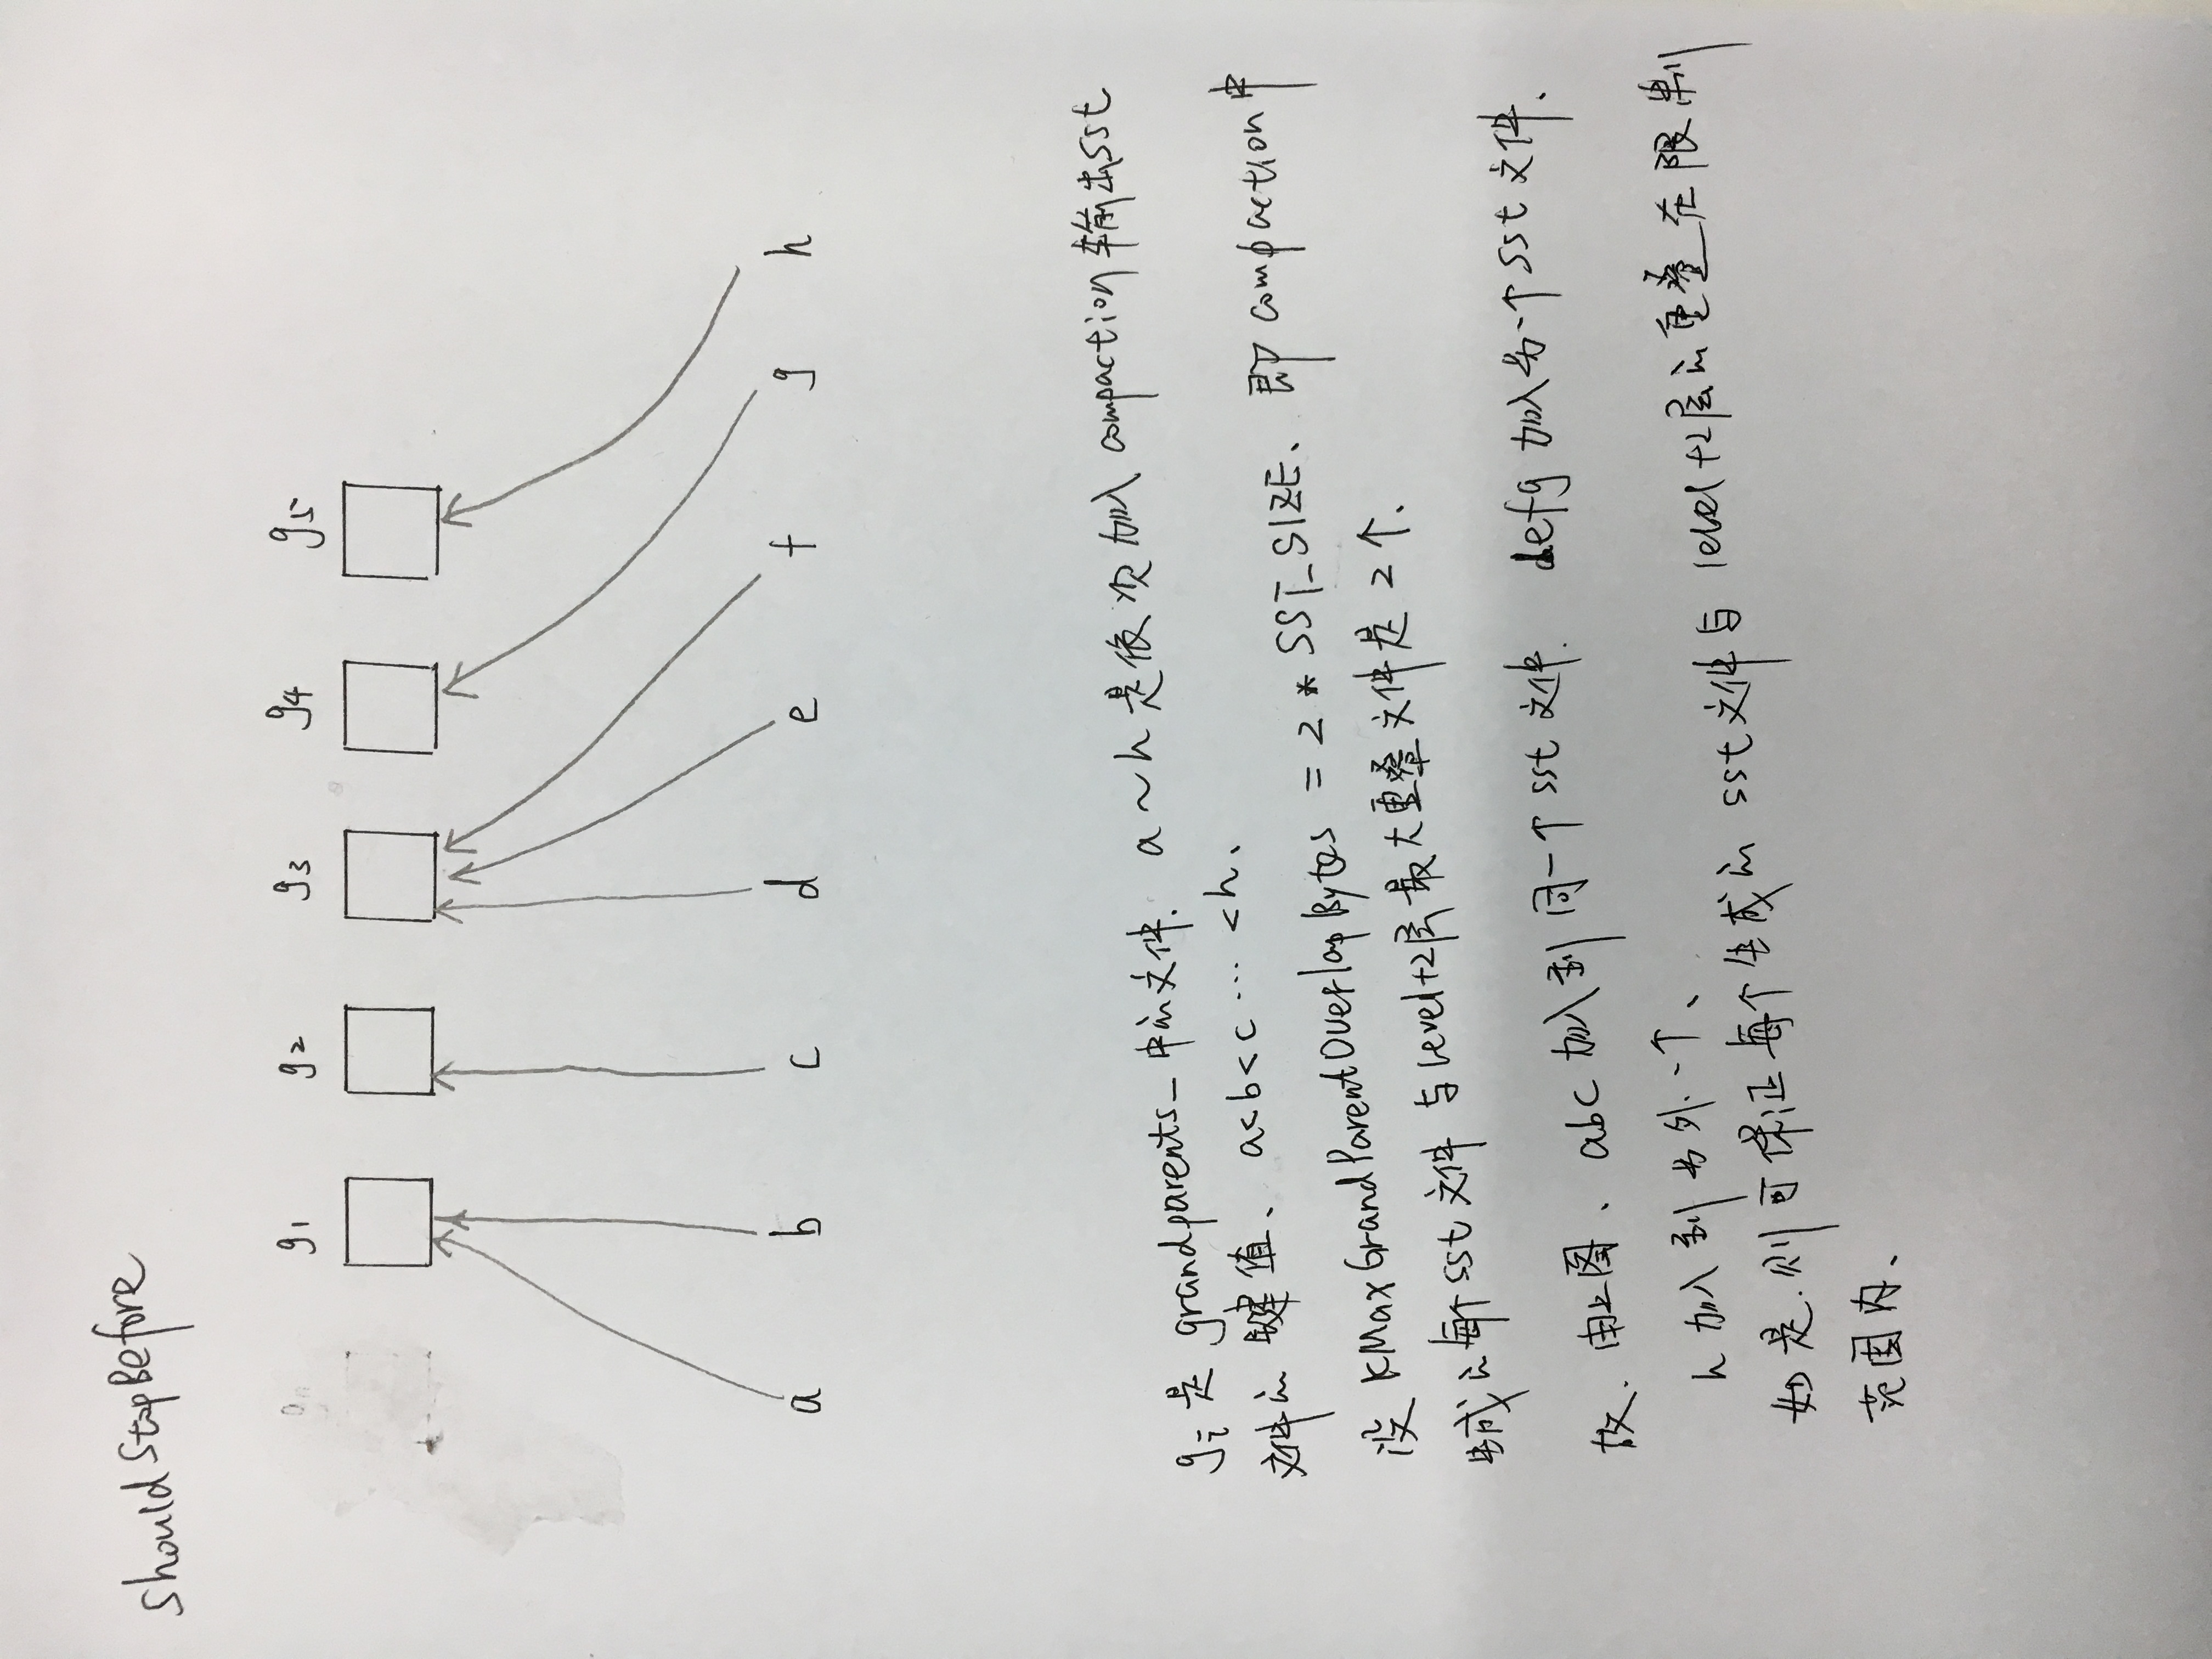 ShouldStopBefore
g1 g2 g3 g4 g5
a b c d e f g h
gi 是 grandparents_ 中的文件. a~h 是依次加入 compaction 输出sst
文件的 键值、 a<b<c … <h、
设 KMaxGrandParentOverlapBytes = 2 * SST_SIZE、 即 compaction中
生成的每个sst文件 与level+2层最大重叠文件是 2个、
故、由上图、abc加入到同一个sst文件. defg 加入另一个sst文件.
h 加入到另外一个、
如是.则可保证每个生成的 sst文件与 level+2层的重叠在限制
范围内、